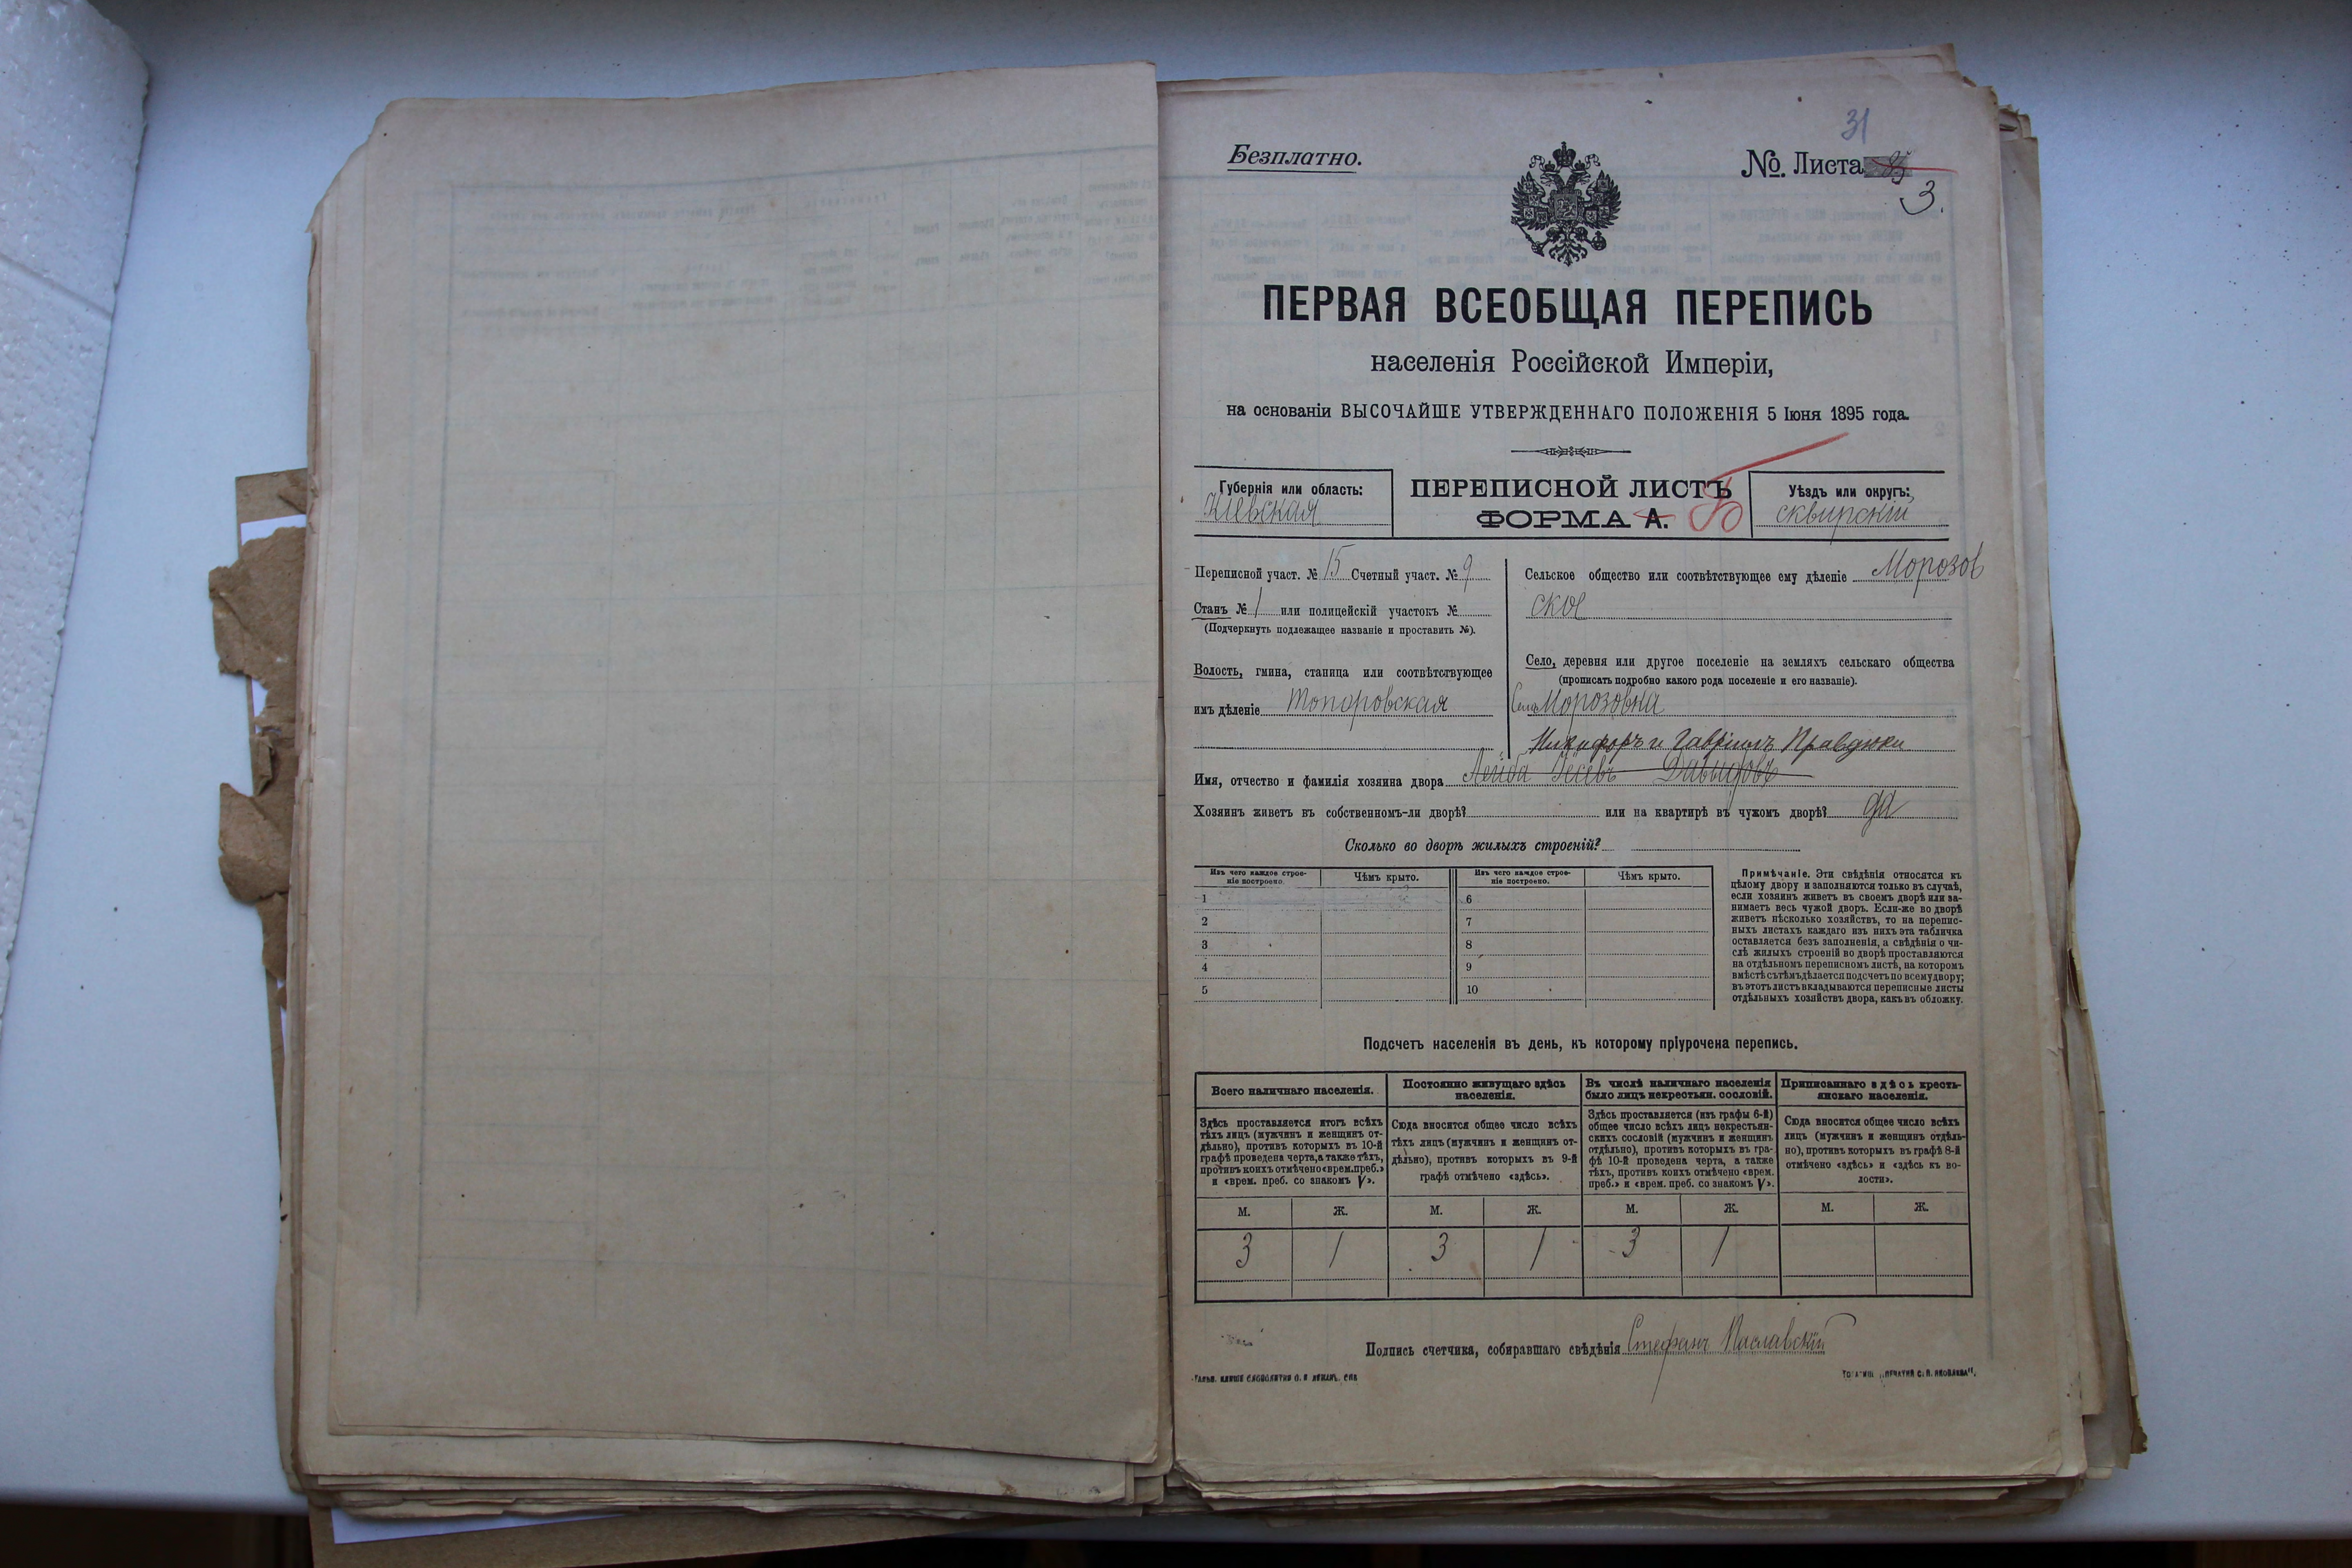 31
Безплатно.
№ Листа
3.
ПЕРВАЯ ВСЕОБЩАЯ ПЕРЕПИСЬ
населенія Россійской Имперіи,
на основаніи ВЫСОЧАЙШЕ УТВЕРЖДЕННАГО ПОЛОЖЕНІЯ 5 Іюня 1895 года.
Губернія или область:
Кіевская
ПЕРЕПИСНОЙ ЛИСТЪ
ФОРМА А. Б
Уѣздъ или округъ:
сквирскій
Переписной участ. № 15 Счетный участ. № 9
Станъ № 1 или полицейскій участокъ №
(Подчеркнуть подлежащее названіе и проставить №).
Волость, гмина, станица или соотвѣтствующее
имъ дѣленіе Топоровская
Сельское общество или соотвѣтствующее ему дѣленіе Морозов
ское
Село, деревня или другое поселеніе на земляхъ сельскаго общества
(прописать подробно какого рода поселеніе и его названіе).
Село Морозовка
Никифоръ и Гавріилъ Правдюки
Имя, отчество и фамилія хозяина двора Лейба Іосевъ Давыдовъ
Хозяинъ живетъ въ собственномъ-ли дворѣ? или на квартирѣ въ чужомъ дворѣ? да
Сколько во дворѣ жилыхъ строеній?
Изъ чего каждое строе-
ніе построено.
Чѣмъ крыто.
Изъ чего каждое строе-
ніе построено.
Чѣмъ крыто.
1
6
2
7
3
8
4
9
5
10
Примѣчаніе. Эти свѣдѣнія относятся къ
цѣлому двору и заполняются только въ случаѣ,
если хозяинъ живетъ въ своемъ дворѣ или за-
нимаетъ весь чужой дворъ. Если-же во дворѣ
живетъ нѣсколько хозяйствъ, то на перепис-
ныхъ листахъ каждаго изъ нихъ эта табличка
оставляется безъ заполненія, а свѣдѣнія о чи-
слѣ жилыхъ строеній во дворѣ проставляются
на отдѣльномъ переписномъ листѣ, на которомъ
вмѣстѣ съ тѣмъ дѣлается подсчетъ по всему двору;
въ этотъ листъ вкладываются переписные листы
отдѣльныхъ хозяйствъ двора, какъ въ обложку.
Подсчетъ населенія въ день, къ которому пріурочена перепись.
Всего наличнаго населенія.
Здѣсь проставляется итогъ всѣхъ
тѣхъ лицъ (мужчинъ и женщинъ от-
дѣльно), противъ которыхъ въ 10-й
графѣ проведена черта, а также тѣхъ,
противъ коихъ отмѣчено «врем. преб.»
и «врем. преб. со знакомъ V».
Постоянно живущаго здѣсь
населенія.
Сюда вносится общее число всѣхъ
тѣхъ лицъ (мужчинъ и женщинъ от-
дѣльно), противъ которыхъ въ 9-й
графѣ отмѣчено «здѣсь».
Въ числѣ наличнаго населенія
было лицъ некрестьян. сословій.
Здѣсь проставляется (изъ графы 6-й)
общее число всѣхъ лицъ некрестьян-
скихъ сословій (мужчинъ и женщинъ
отдѣльно), противъ которыхъ въ гра-
фѣ 10-й проведена черта, а также
тѣхъ, противъ коихъ отмѣчено «врем.
преб.» и «врем. преб. со знакомъ V».
Приписаннаго здѣсь кресть-
янскаго населенія.
Сюда вносится общее число всѣхъ
лицъ (мужчинъ и женщинъ отдѣль-
но), противъ которыхъ въ графѣ 8-й
отмѣчено «здѣсь» и «здѣсь къ во-
лости».
М. Ж. М. Ж. М. Ж. М. Ж.
3 1 3 1 3 1
Подпись счетчика, собиравшаго свѣдѣнія Стефанъ Паславскій